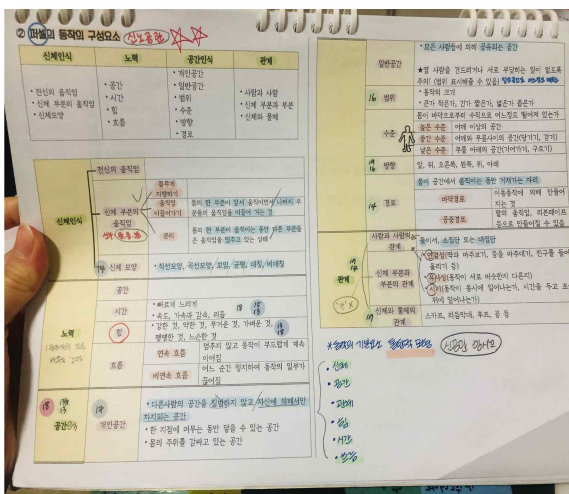 ② 퍼셀의 동작의 구성요소 신노공관
신체인식 노력 공간인식 관계
• 전신의 움직임
• 신체 부분의 움직임
• 신체모양
• 공간
• 시간
• 힘
• 흐름
• 개인공간
• 일반공간
• 범위
• 수준
• 방향
• 경로
• 사람과 사람
• 신체 부분과 부분
• 신체와 물체
신체인식
전신의 움직임
신체 부분의
움직임
몸무게
지탱하기
움직임
이끌어가기
몸의 한 부분이 앞서 움직이면서 나머지 부
분들의 움직임을 이끌어 가는 것
분리
몸의 한 부분이 움직이는 동안 다른 부분들
은 움직임을 멈추고 있는 상태
신체 모양
• 직선모양, 곡선모양, 꼬임, 균형, 대칭, 비대칭
노력
공간
시간
• 빠르게 느리게
• 속도, 가속과 감속, 리듬
힘
• 강한 것, 약한 것, 무거운 것, 가벼운 것,
팽팽한 것, 느슨한 것
흐름
연속 흐름
멈추지 않고 동작이 부드럽게 계속
이어짐
비연속 흐름
어느 순간 정지하여 동작의 일부가
끊어짐
18
공간인식
개인공간
• 다른사람의 공간을 침범하지 않고 자신에 의해서만
차지되는 공간
• 한 지점에 머무는 동안 닿을 수 있는 공간
• 몸의 주위를 감싸고 있는 공간
일반공간
• 모든 사람들에 의해 공유되는 공간
★옆 사람을 건드리거나 서로 부딪히는 일이 없도록
주의! (범위 표시해줄 수 있음)
16 범위
• 동작의 크기
• 큰가 작은가, 긴가 짧은가, 넓은가 좁은가
수준
몸이 바닥으로부터 수직으로 어느정도 떨어져 있는가
높은 수준 어깨 이상의 공간
중간 수준 어깨와 무릎사이의 공간(당기기, 걷기)
낮은 수준 무릎 아래의 공간(기어가기, 구르기)
방향
앞, 뒤, 오른쪽, 왼쪽, 위, 아래
14 경로
몸이 공간에서 움직이는 동안 거쳐가는 자리
바닥경로
이동동작에 의해 만들어
지는 것
공중경로
팔의 움직임, 리본테이프
등으로 만들어질 수 있음
관계
사람과 사람의
관계
둘이서, 소집단 또는 대집단
신체 부분과
부분의 관계
• 연결성(팍과 마주보기, 등을 마주대기, 친구를 들어
올리기 등)
• 유사성(동작이 서로 비슷한지 다른지)
• 시기(동작이 동시에 일어나는가, 시간을 두고 조
위에 일어나는가)
17
신체와 물체의
관계
스카프, 리듬막대, 후프, 공 등
• 신체
• 공간
• 관계
• 힘
• 시간
• 흐름